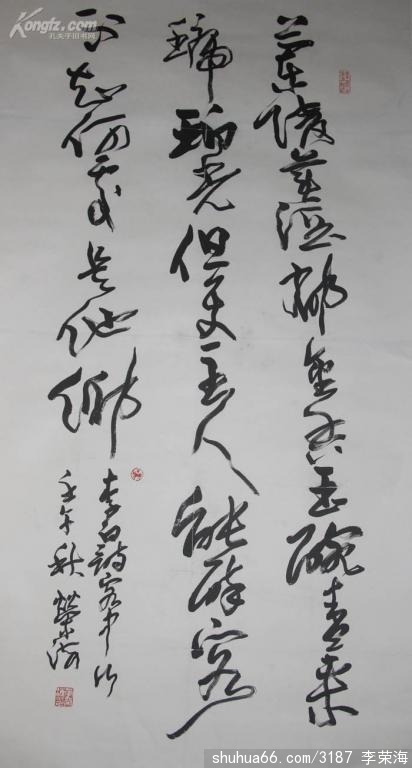 Kongfz.com
孔夫子旧书网
蘭陵美酒鬱金香玉碗盛來
琥珀光但使主人能醉客
不知何處是他鄉
李白詩客中行
壬午秋榮海
shuhua66.com/3187 李荣海